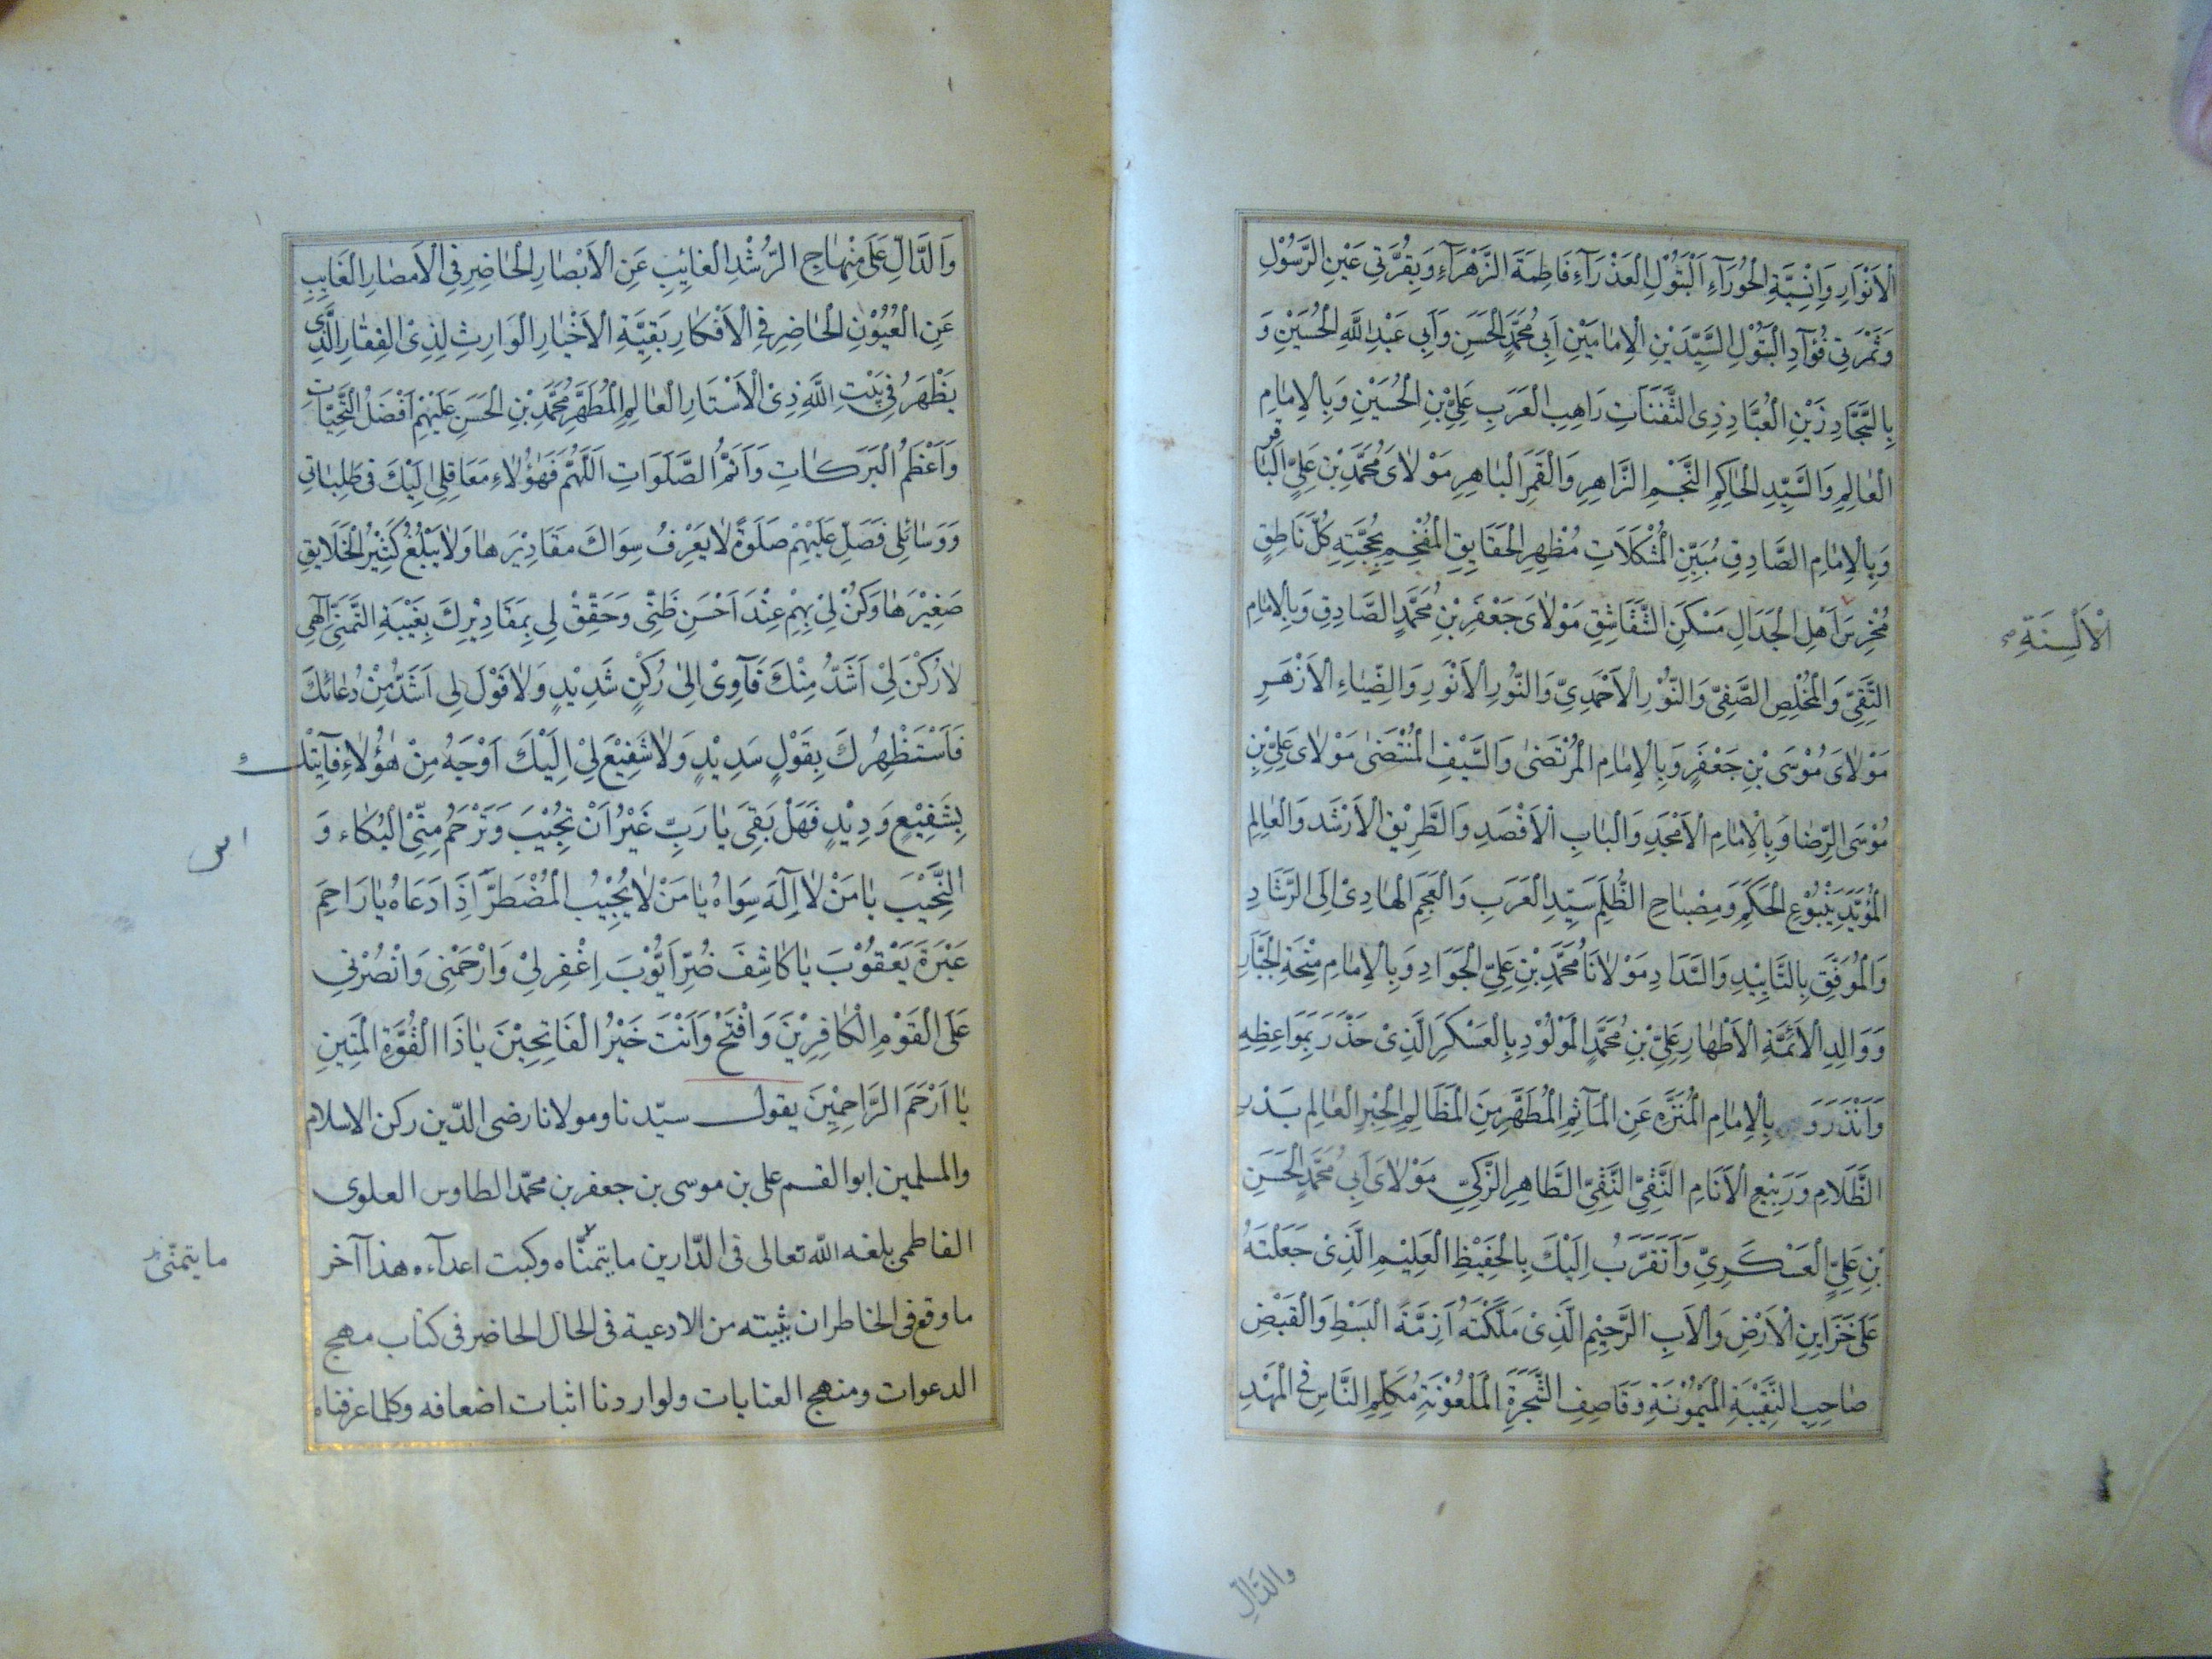 الْاَنْوَارِ وَاِنْسِيَّةِ الْحُوْرَآءِ اَلْبَتُوْلِ الْعَذْرَآءِ فَاطِمَةَ الزَّهْرَآءِ وَبِقُرَّتَيْ عَيْنِ الرَّسُوْلِ
وَثَمْرَتَيْ فُؤَآدِ الْبَتُوْلِ السَّيِّدَيْنِ الْاِمَامَيْنِ اَبِي مُحَمَّدٍ الْحَسَنِ وَاَبِي عَبْدِ اللّٰهِ الْحُسَيْنِ وَ
بِالسَّجَّادِ زَيْنِ الْعُبَّادِ ذِى الثَّفَنَاتِ رَاهِبِ الْعَرَبِ عَلِيِّ بْنِ الْحُسَيْنِ وَبِالْاِمَامِ
الْعَالِمِ وَالسَّيِّدِ الْحَاكِمِ النَّجْمِ الزَّاهِرِ وَالْقَمَرِ الْبَاهِرِ مَوْلَاىَ مُحَمَّدِ بْنِ عَلِيٍّ الْبَاقِرِ
وَبِالْاِمَامِ الصَّادِقِ مُبَيِّنِ الْمُشْكِلَاتِ مُظْهِرِ الْحَقَايِقِ الْمُفْحِمِ بِحُجَّتِهِ كُلَّ نَاطِقٍ
مُخْرِسِ اَهْلِ الْجَدَالِ مَسْكَنِ الشَّقَاشِقِ مَوْلَاىَ جَعْفَرِ بْنِ مُحَمَّدٍ الصَّادِقِ وَبِالْاِمَامِ
الْاَلْسِنَةِ
التَّقِيِّ وَالْمُخْلِصِ الصَّفِيِّ وَالنُّوْرِ الْاَحْمَدِيِّ وَالنُّوْرِ الْاَنْوَرِ وَالضِّيَاءِ الْاَزْهَرِ
مَوْلَاىَ مُوْسَى بْنِ جَعْفَرٍ وَبِالْاِمَامِ الْمُرْتَضىٰ وَالسَّيْفِ الْمُنْتَضىٰ مَوْلَاىَ عَلِيِّ بْنِ
مُوْسَى الرِّضَا وَبِالْاِمَامِ الْاَمْجَدِ وَالْبَابِ الْاَقْصَدِ وَالطَّرِيْقِ الْاَرْشَدِ وَالْعَالِمِ
الْمُؤَيَّدِ يَنْبُوْعِ الْحَكَمِ وَمِصْبَاحِ الظُّلَمِ سَيِّدِ الْعَرَبِ وَالْعَجَمِ الْهَادِىْ اِلَى الرَّشَادِ
وَالْمُوَفَّقِ بِالتَّايِيْدِ وَالسَّدَادِ مَوْلَانَا مُحَمَّدِ بْنِ عَلِيِّ الْجَوَادِ وَبِالْاِمَامِ مِنْحَةِ الْجَبَّارِ
وَوَالِدِ الْاَئِمَّةِ الْاَطْهَارِ عَلِيِّ بْنِ مُحَمَّدٍ الْمَوْلُوْدِ بِالْعَسْكَرِ الَّذِىْ حَذَّرَ بِمَوَاعِظِهِ
وَاَنْذَرَ وَ بِالْاِمَامِ الْمُنَزَّهِ عَنِ الْمَآثِمِ الْمُطَهَّرِ مِنَ الْمَظَالِمِ الْحِبْرِ الْعَالِمِ بَدْرِ
الظَّلَامِ وَرَبِيْعِ الْاَنَامِ التَّقِيِّ النَّقِيِّ الطَّاهِرِ الزَّكِيِّ مَوْلَاىَ اَبِي مُحَمَّدٍ الْحَسَنِ
بْنِ عَلِيٍّ الْعَسْكَرِيِّ وَاَتَقَرَّبُ اِلَيْكَ بِالْحَفِيْظِ الْعَلِيْمِ الَّذِىْ جَعَلْتَهُ
عَلىٰ خَزَايِنِ الْاَرْضِ وَالْاَبِ الرَّحِيْمِ الَّذِىْ مَلَّكْتَهُ اَزِمَّةَ الْبَسْطِ وَالْقَبْضِ
صَاحِبِ النَّقِيْبَةِ الْمَيْمُوْنَةِ وَقَاصِفِ الشَّجَرَةِ الْمَلْعُوْنَةِ مُكَلِّمِ النَّاسِ فِي الْمَهْدِ
والدَّالِّ
وَالدَّالِّ عَلىٰ مِنْهَاجِ الرُّشْدِ الْغَائِبِ عَنِ الْاَبْصَارِ الْحَاضِرِ فِي الْاَمصَارِ الْغَايِبِ
عَنِ الْعُيُوْنِ الْحَاضِرِ فِي الْاَفْكَارِ بَقِيَّةِ الْاَخْيَارِ الْوَارِثِ لِذِىْ الْفِقَارِ الَّذِى
يَظْهَرُ فِي بَيْتِ اللّٰهِ ذِىْ الْاَسْتَارِ الْعَالِمِ الْمُطَهَّرِ مُحَمَّدِ بْنِ الْحَسَنِ عَلَيْهِمْ اَفْضَلُ التَّحِيَّاتِ
وَاَعْظَمُ الْبَرَكَاتِ وَاَتَمُّ الصَّلَوَاتِ اَللّٰهُمَّ فَهٰؤُلَاءِ مَعَاقِلِى اِلَيْكَ فى طَلِبَاتِي
وَوَسَائِلى فَصَلِّ عَلَيْهِمْ صَلَوةً لَا يَعْرِفُ سِوَاكَ مَقَادِيْرَهَا وَلَا يَبْلُغُ كَثِيْرُ الْخَلَايِقِ
صَغِيْرَهَا وَكُنْ لِيْ بِهِمْ عِنْدَ اَحْسَنِ ظَنِّى وَحَقِّقْ لِى بِمَقَادِيْرِكَ بِغَيْبَةِ التَّمَنِّى اِلٰهِى
لَا رُكْنَ لِىْ اَشَدُّ مِنْكَ فَآوِىْ اِلىٰ رُكْنٍ شَدِيْدٍ وَلَا قَوْلَ لِى اَشَدُّ مِنْ دُعَائِكَ
فَاَسْتَظْهِرُكَ بِقَوْلٍ سَدِيْدٍ وَلَا شَفِيْعَ لِىْ اِلَيْكَ اَوْجَهُ مِنْ هٰؤُلَاءِ فَآتِيْكَ
بِشَفِيْعٍ وَدِيْدٍ فَهَلْ بَقِىَ يَا رَبِّ غَيْرُ اَنْ تُجِيْبَ وَتَرْحَمُ مِنِّى الْبُكَاء وَ
النَّحِيْبَ يَا مَنْ لَا اِلٰهَ سِوَاهُ يَا مَنْ لَا يُجِيْبُ الْمُضْطَرَّ اِذَا دَعَاهُ يَا رَاحِمَ
عَبْرَةَ يَعْقُوْبَ يَا كَاشِفَ ضُرِّ اَيُّوْبَ اِغْفِرلِىْ وَارْحَمْنِى وَانْصُرْنِي
عَلَى الْقَوْمِ الْكَافِرِيْنَ وَافْتَحْ وَاَنْتَ خَيْرُ الْفَاتِحِيْنَ يَا ذَا الْقُوَّةِ الْمَتِينِ
يَا اَرْحَمَ الرَّاحِمِيْنَ يقول سيّدنا ومولانا رضى الدّين ركن الاسلام
والمسلمين ابوالقسم على بن موسى بن جعفر بن محمّد الطاوس العلوى
الفاطمى بلغه اللّٰه تعالى فى الدّارين ما يتمنّاه وكبت اعدآءه هذا آخر
ما يتمنّى
ما وقع فى الخاطر ان نثبته من الادعية فى الحال الحاضر فى كتاب مهج
الدعوات ومنهج العنايات ولو اردنا اثبات اضعافه وكلما عرفناه